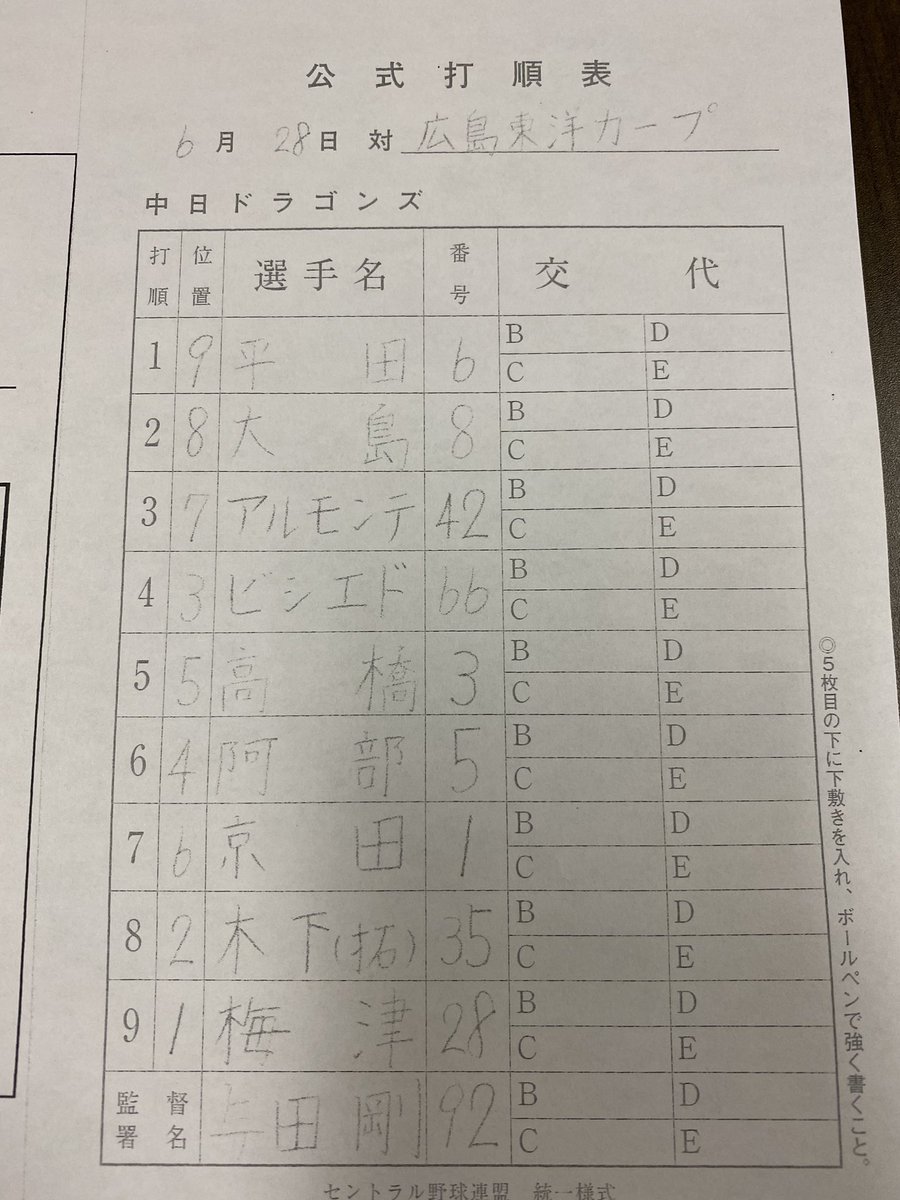 公式打順表
6月 28日 対 広島東洋カープ
中日ドラゴンズ
打順 位置 選手名 番号 交代
1 9 平田 6 B D
C E
2 8 大島 8 B D
C E
3 7 アルモンテ 42 B D
C E
4 3 ビシエド 66 B D
C E
5 5 高橋 3 B D
C E
6 4 阿部 5 B D
C E
7 6 京田 1 B D
C E
8 2 木下(拓) 35 B D
C E
9 1 梅津 28 B D
C E
監督署名 与田剛 92 B D
C E
◎5枚目の下に下敷きを入れ、ボールペンで強く書くこと。
セントラル野球連盟 統一様式